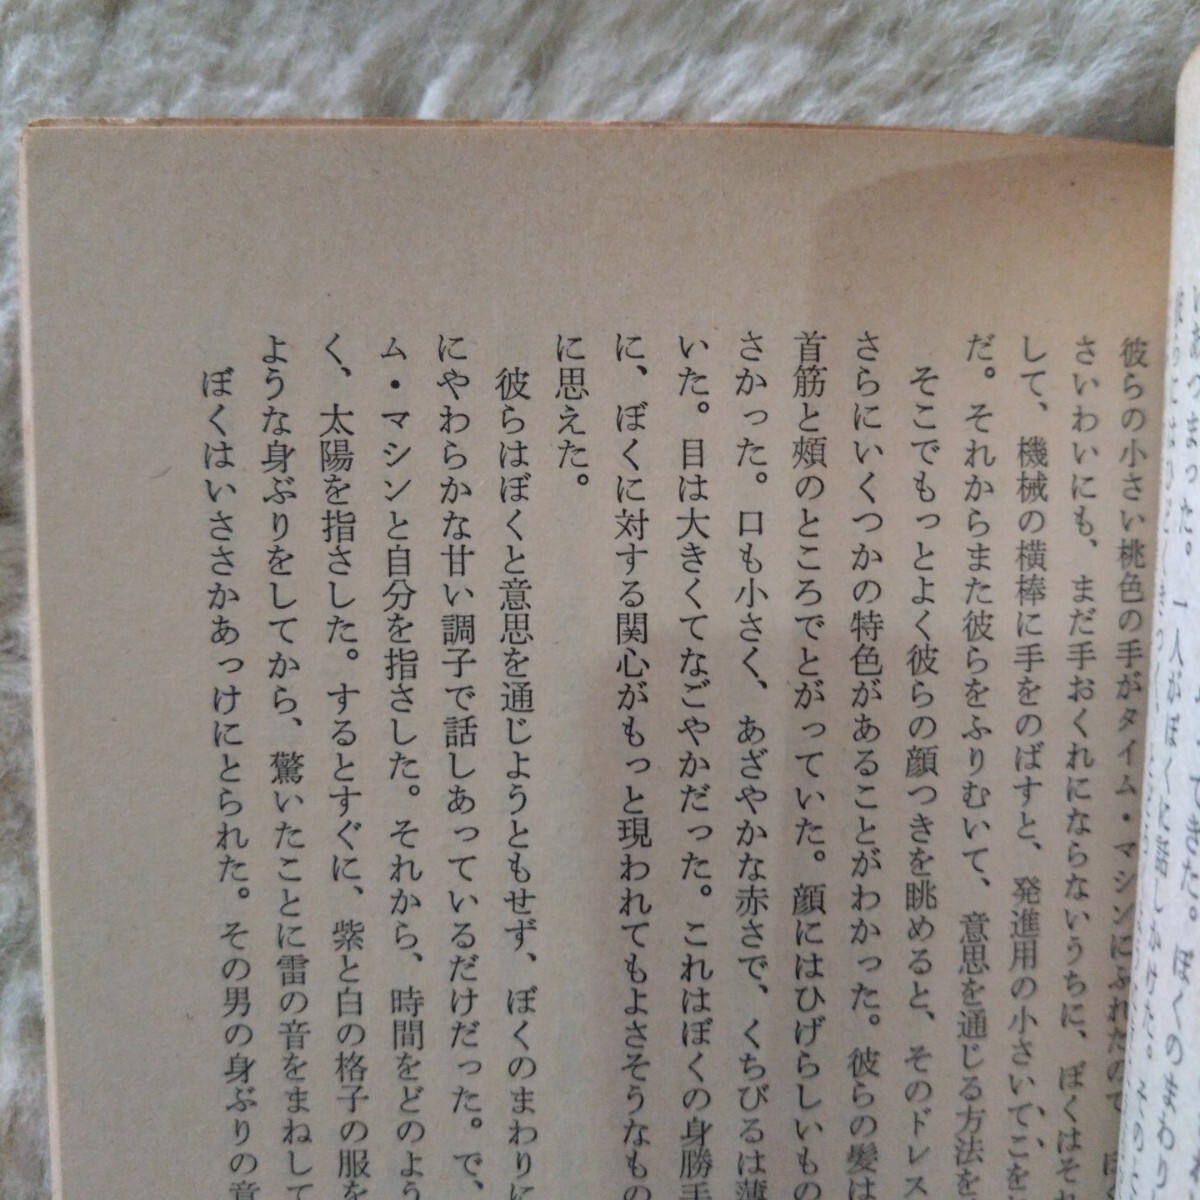 彼らの小さい桃色の手がタイム・マシンにふれたので
さいわいにも、まだ手おくれにならないうちに、ぼくはそ
して、機械の横棒に手をのばすと、発進用の小さいてこを
だ。それからまた彼らをふりむいて、意思を通じる方法を
そこでもっとよく彼らの顔つきを眺めると、そのドレス
さらにいくつかの特色があることがわかった。彼らの髪は
首筋と頰のところでとがっていた。顔にはひげらしいもの
さかった。口も小さく、あざやかな赤さで、くちびるは薄
いた。目は大きくてなごやかだった。これはぼくの身勝手
に、ぼくに対する関心がもっと現われてもよさそうなもの
に思えた。
彼らはぼくと意思を通じようともせず、ぼくのまわりに
にやわらかな甘い調子で話しあっているだけだった。で、
ム・マシンと自分を指さした。それから、時間をどのよう
く、太陽を指さした。するとすぐに、紫と白の格子の服を
ような身ぶりをしてから、驚いたことに雷の音をまねして
ぼくはいささかあっけにとられた。その男の身ぶりの音